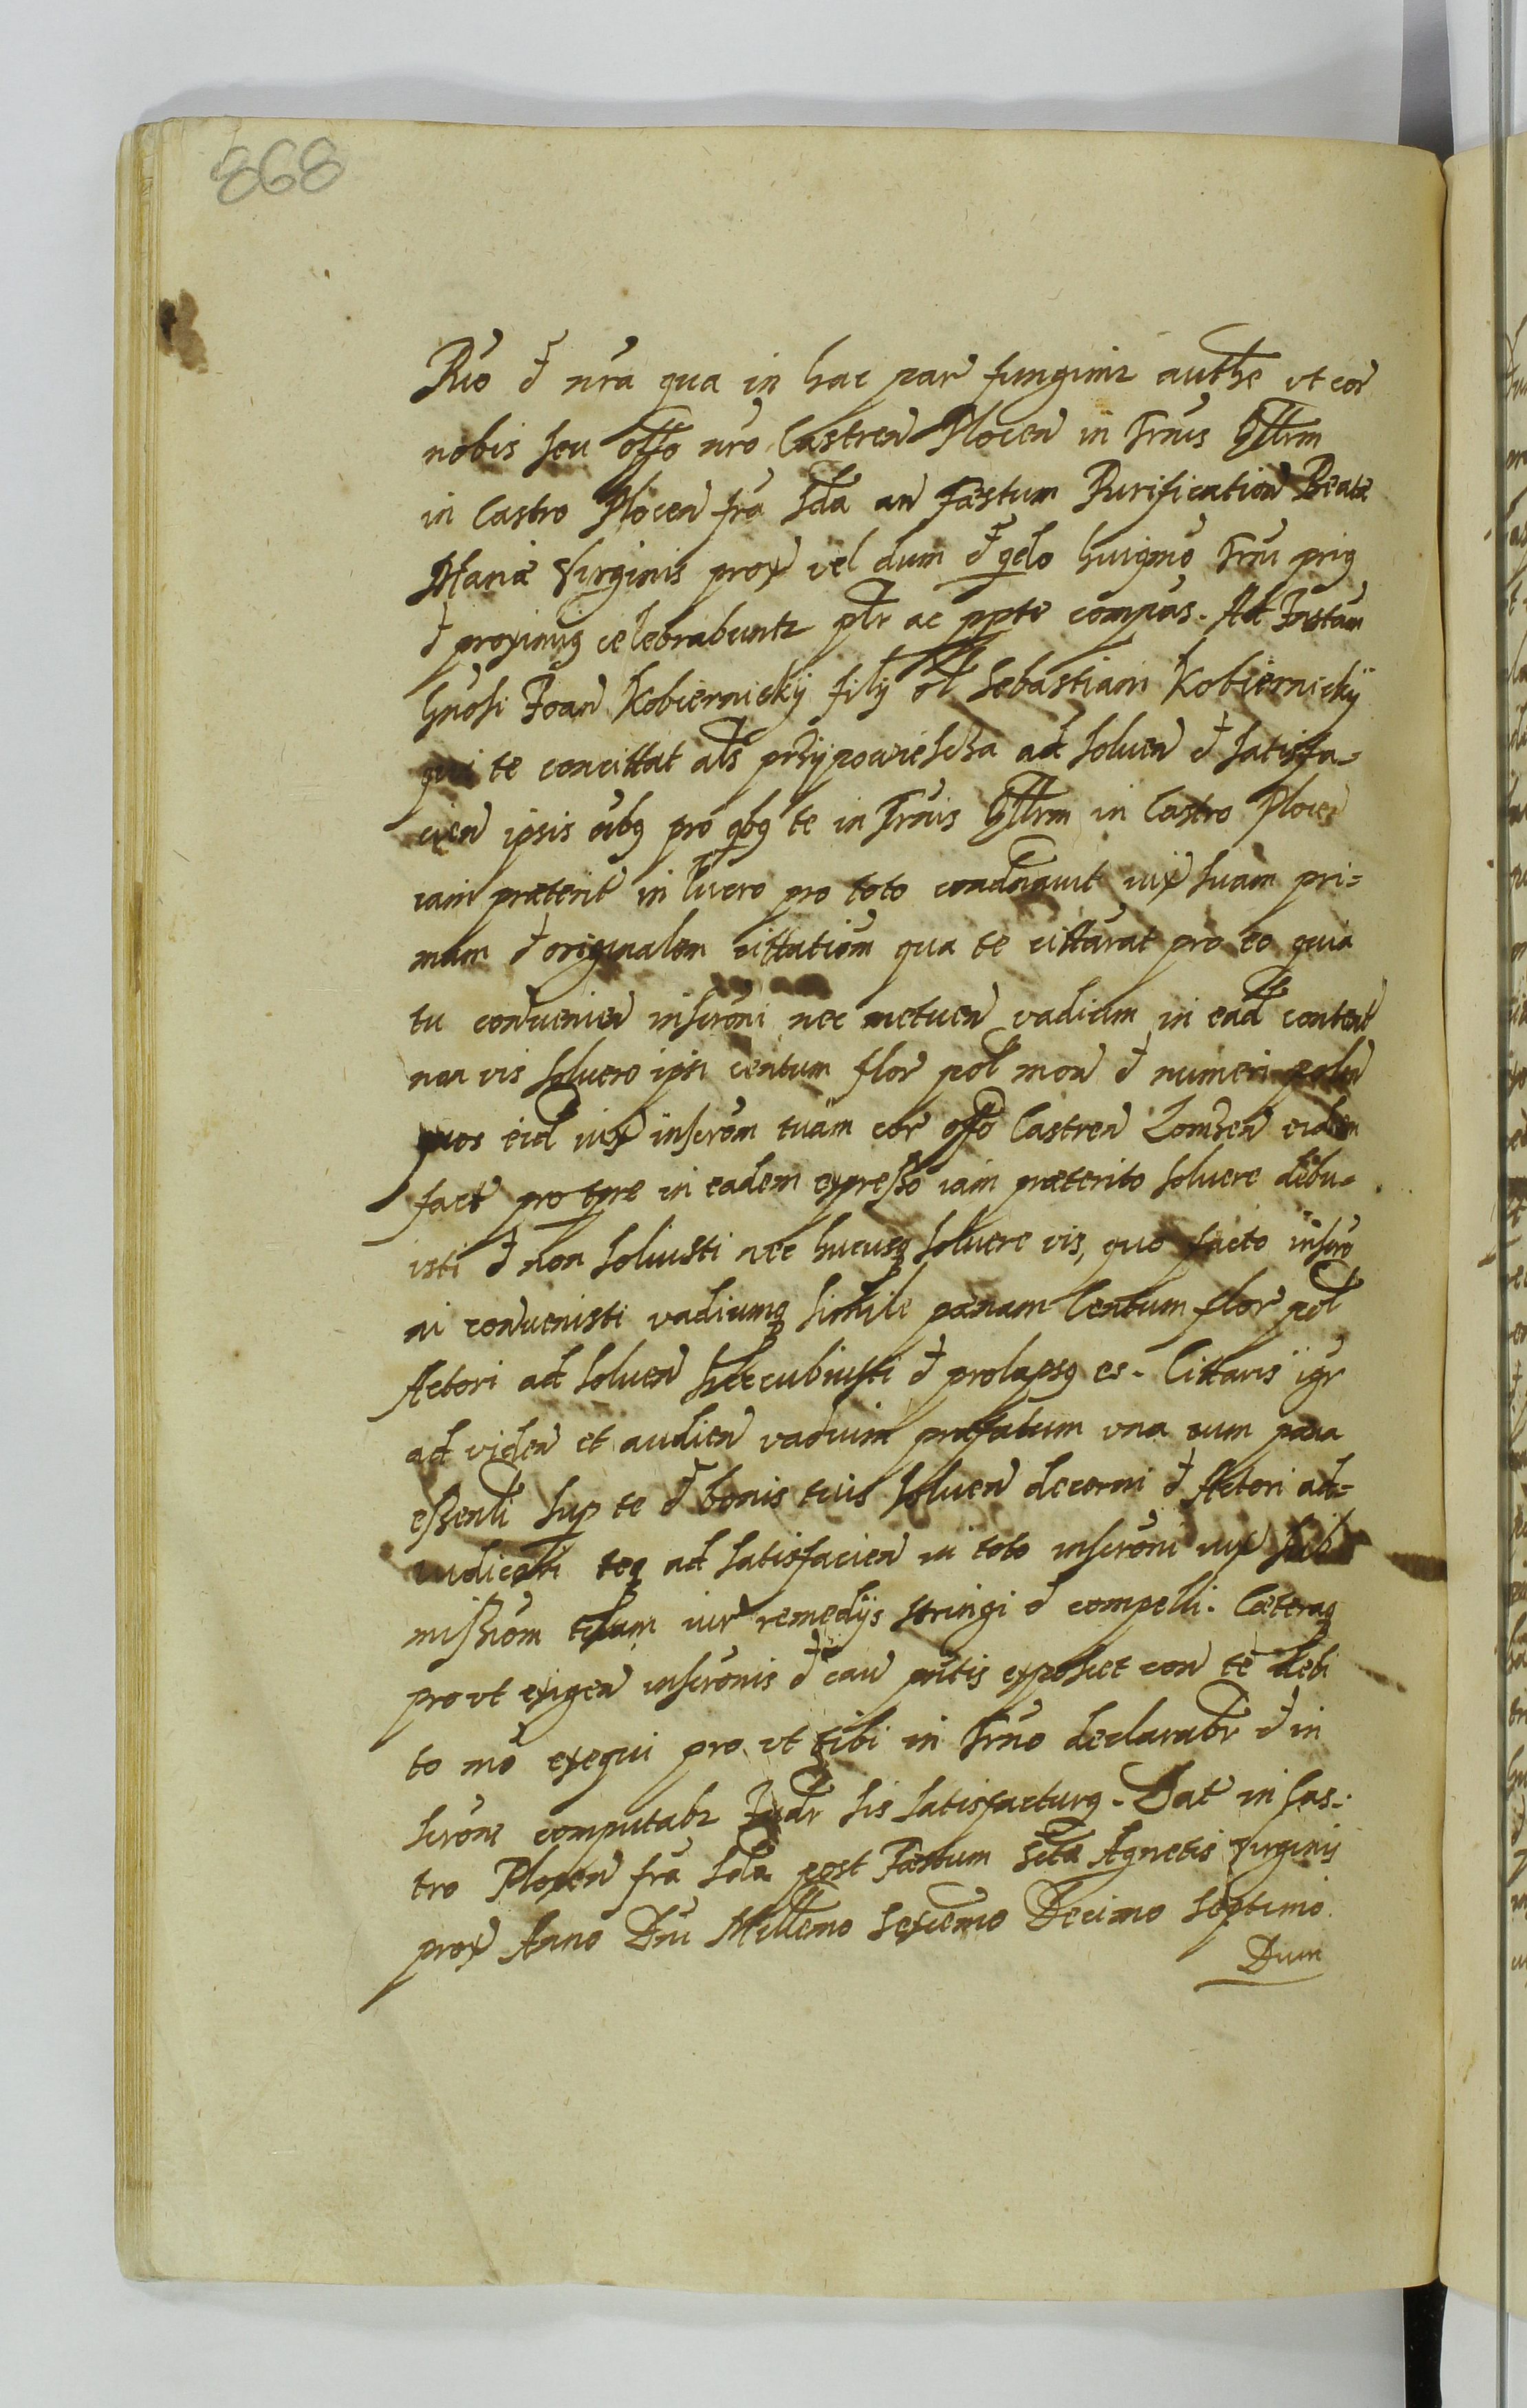 868
Rño et nra qua in hac par fungimr authe vt cor
nobis seu offo nro Castren Plocen in Trnis Qttrm
in Castro Plocen fra 2da an Fæstum Purification Beatæ
Mariæ Virginis prox vel dum et qdo huigmo Trni prig
et proximig celebrabuntr ptr ac ppte compas. Ad Instam
Gnosi Joan Kobiernickij filij ol Sebastiani Kobiernickij
qui te concittat als przypowieszcza ad soluen et satisfa-
cien ipsis oibg pro qbg te in Trnis Qttrm in Castro Plocen
iam præterit in lucro pro toto condnauit iux suam pri-
mam et originalem cittatiom qua te cittarat pro eo quia
tu conuenien inscroni nec metuen vadium in ead content
non vis soluere ipsi centum flor pol mon et numeri polen
quos eid iux inscrom tuam cor offo Castren Lomzen eidem
fact pro tpre in eadem expresso iam præterito soluere debu-
isti et non soluisti nec hucusq soluere vis, quo facto inscro
ni conuenisti vadiumq simile pænam Centum flor pol
Actori ad soluen succubuisti et prolapsg es. Cittaris igr
ad viden et audien vadium præfatum vna cum pæna
essendi sup te et bonis tuis soluen decerni et Actori ad-
iudicari teq ad satisfacien in toto inscroni iux sub
missiom tuam iur remedijs stringi et compelli. Cæteraq
pro vt exigen inscronis et cau pntis exposcet con te debi
to mo exequi pro vt tibi in Trno declarabr et in
scrone computabr Iudr sis satisfacturg. Dat in Cas-
tro Plocen fra 2da post Fæstum Sctæ Agnetis Virginis
prox Anno Dni Millemo Sexcemo Decimo Septimo
Dum